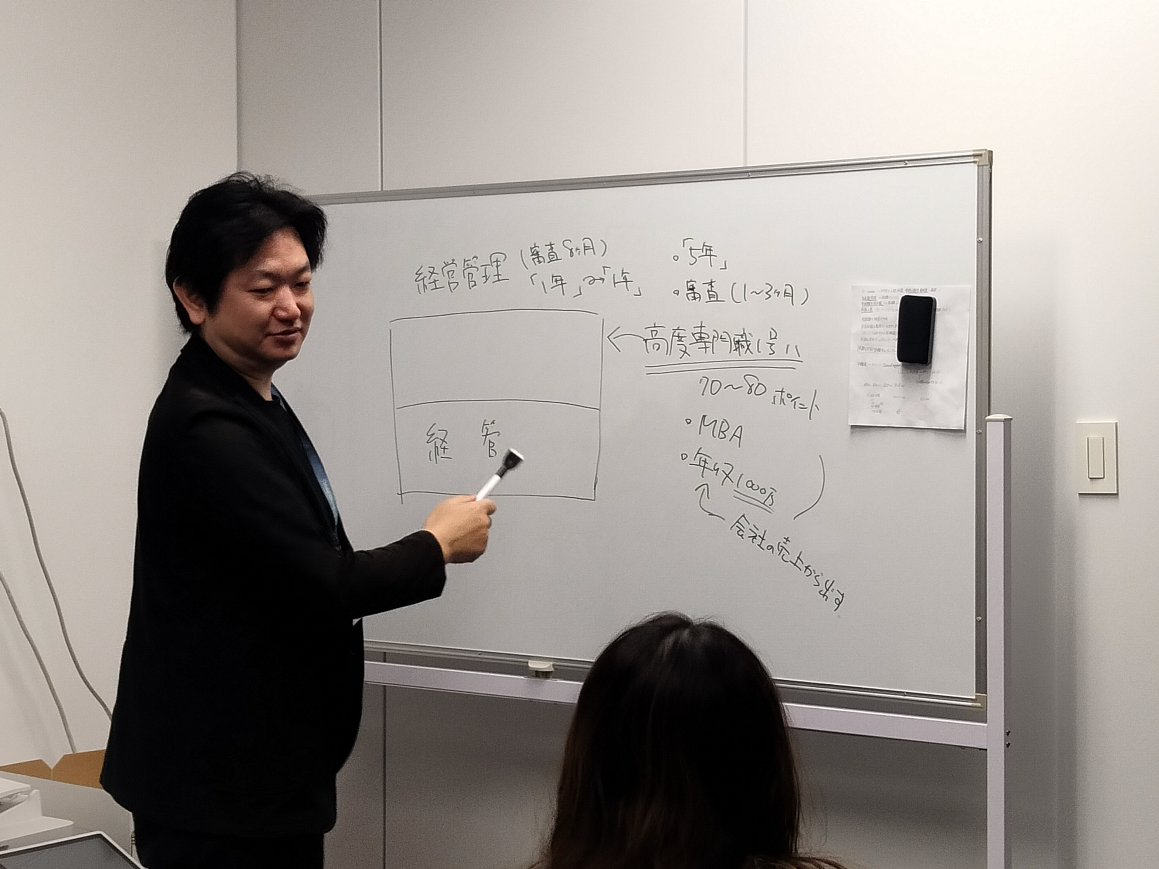 経営管理 (審査8ヶ月)
「1年」→「1年」
「5年」
審査(1〜3ヶ月)
←高度専門職1号ハ
70〜80ポイント
経 管
・MBA
・年収1000万
会社の売上から出す